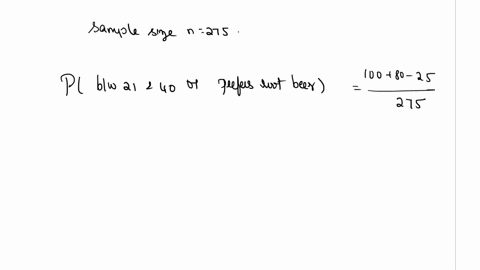 sample size n=275.
P( b/w 21 & 40 or prefers root beer) = (100+80-25)/275